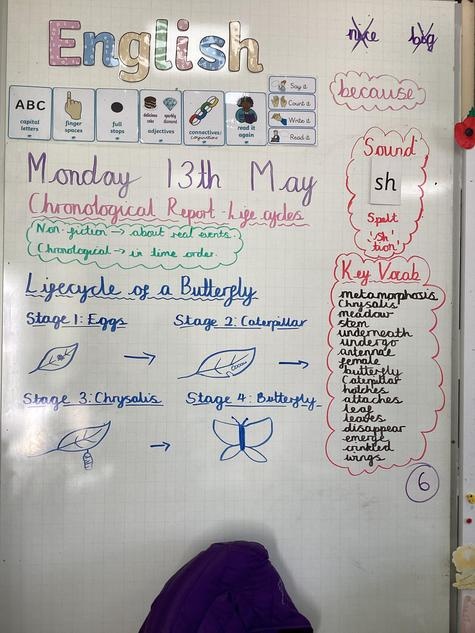 English
nice big
because
ABC
capital letters
finger spaces
full stops
delicious cake
sparkly diamond
adjectives
connectives/
conjunctions
read it again
Say it
Count it
Write it
Read it
Monday 13th May
Chronological Report - Life cycles
Non-fiction → about real events.
Chronological → in time order.
Sound
sh
Spelt
'sh'
'tion'
Lifecycle of a Butterfly
Stage 1: Eggs
Stage 2: Caterpillar
Stage 3: Chrysalis
Stage 4: Butterfly
Key Vocab
metamorphosis
Chrysalis
meadow
stem
underneath
undergo
antennae
female
butterfly
Caterpillar
hatches
attaches
leaf
leaves
disappear
emerge
crinkled
wings
6